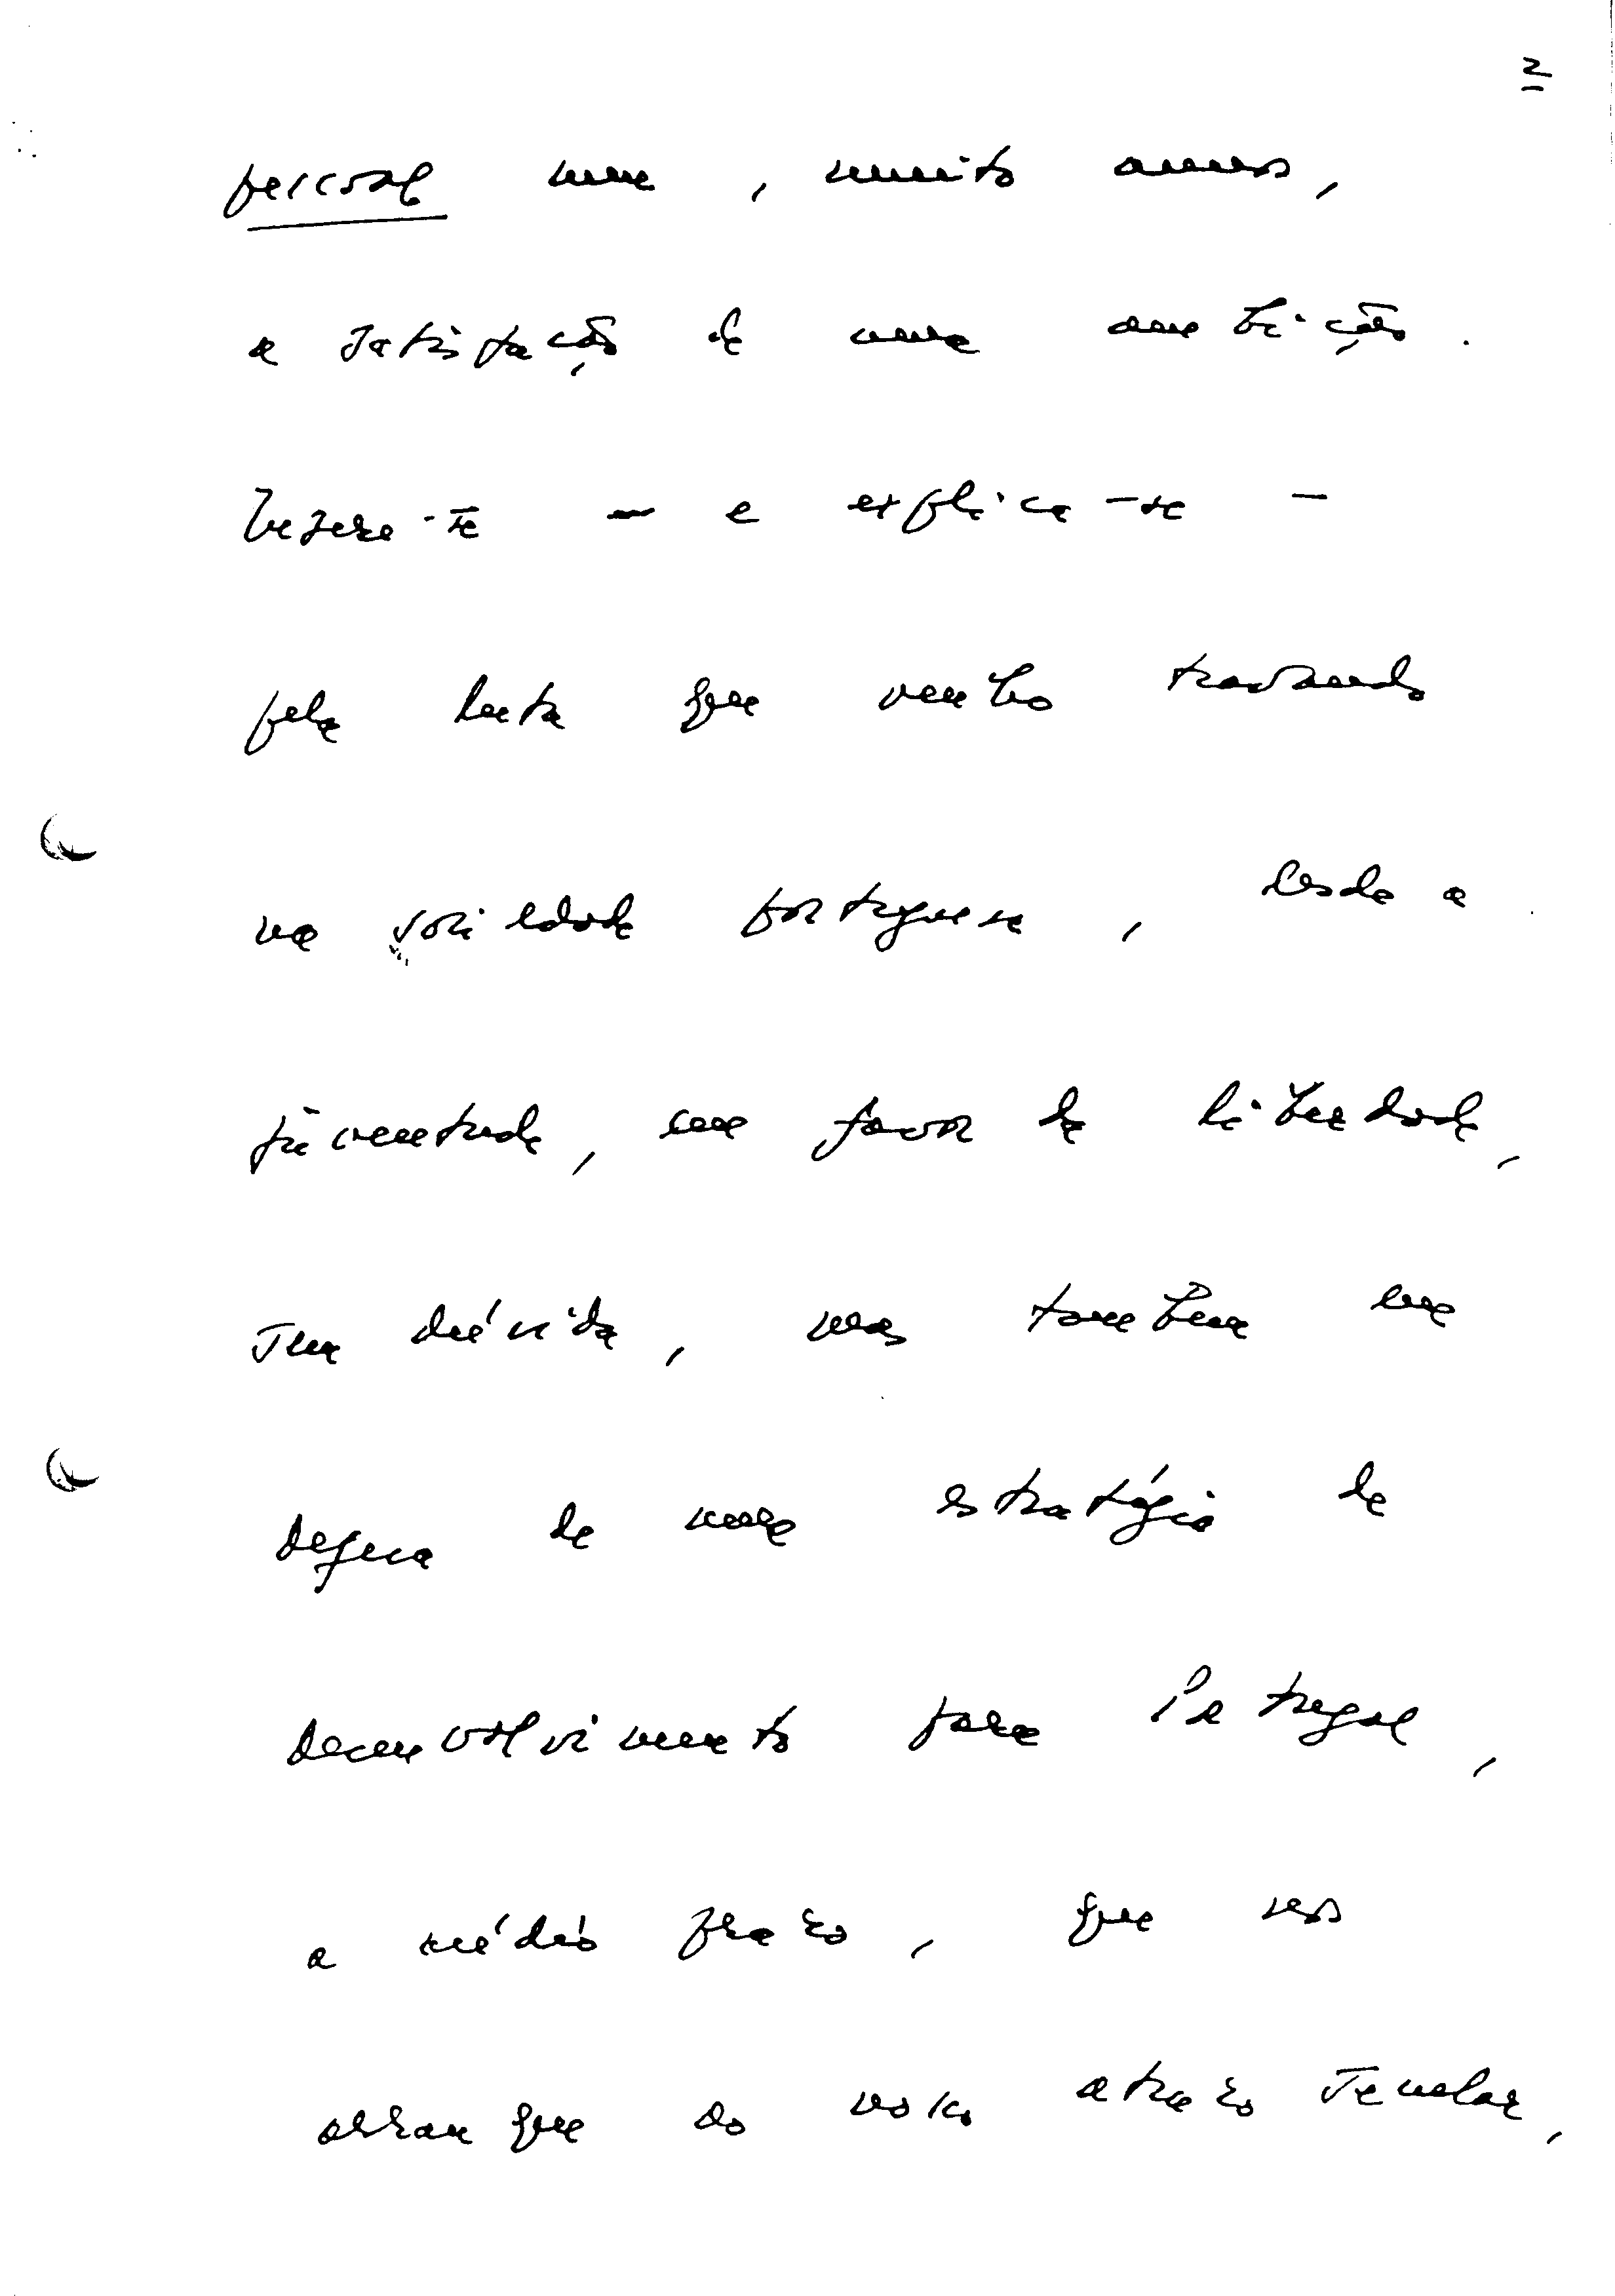 2
pessoal nem, muito menos,
a satisfação de uma ambição.
Insere-se - e explica-se -
pela luta que venho travando
na sociedade portuguesa, desde a
juventude, em favor da liberdade,
sem dúvida, mas também em
defesa de uma estratégia de
desenvolvimento para Portugal,
a médio prazo, que nos
arranque do nosso atraso secular,